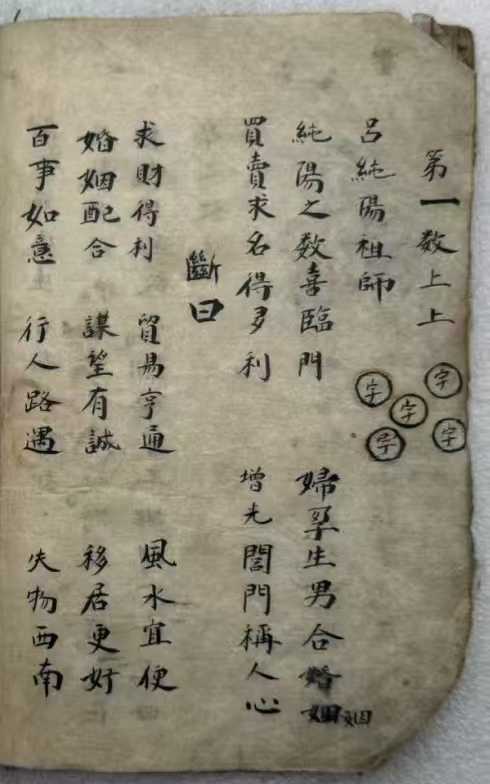 第一数上上
字
字
字
字
字
呂純陽祖師
純陽之数喜臨門　婦孕生男合婚姻
姻
買賣求名得多利　增光閤門稱人心
斷曰
求財得利　貿易亨通　風水宜便
婚姻配合　謀望有誠　移居更好
百事如意　行人路遇　失物西南